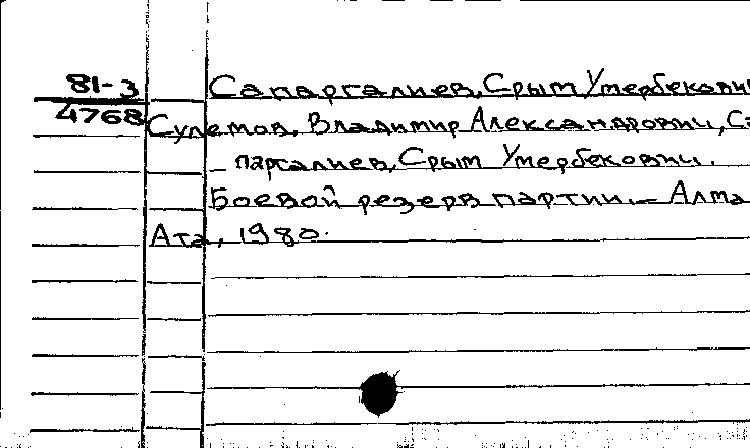 81-3
4768
Сапаргалиев, Срым Умербекович
Сулемов, Владимир Александрович, Са
- паргалиев, Срым Умербекович.
Боевой резерв партии. — Алма
Ата, 1980.